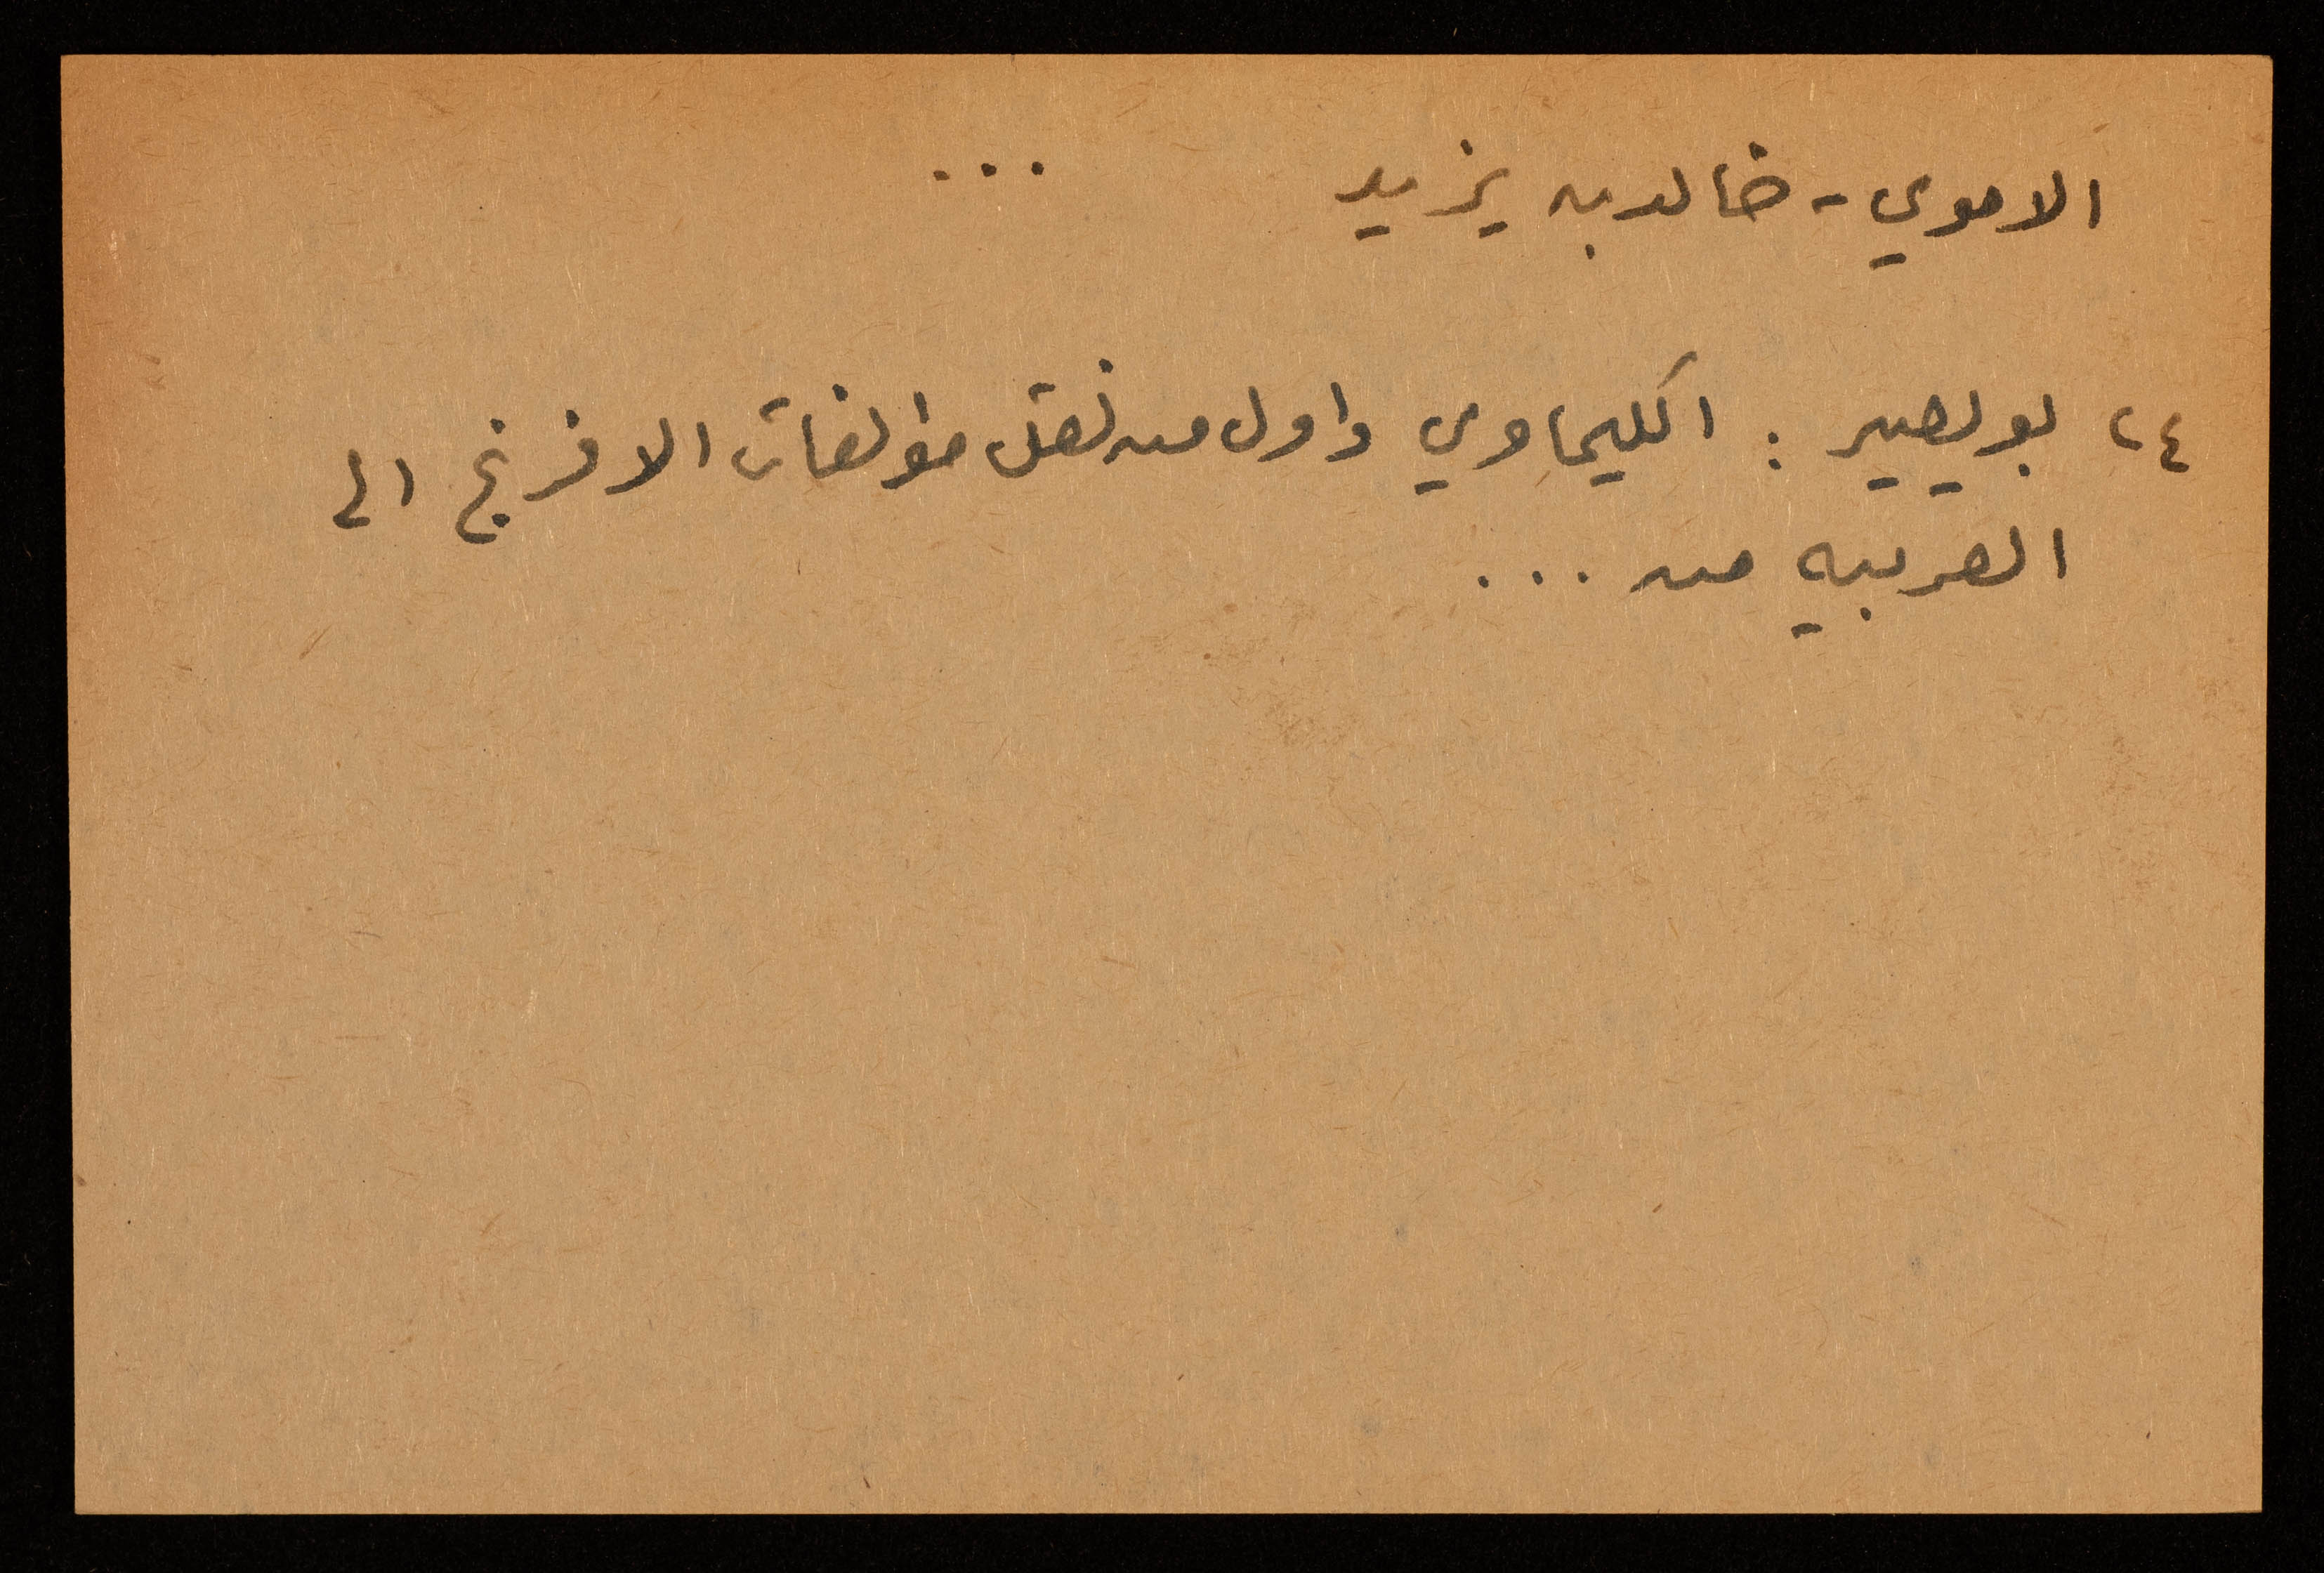 الاموي - خالد بن يزيد ...
٢٤ بويصير : الكيماوي واول من نقل مؤلفات الافرنج الى
العربيه من ...